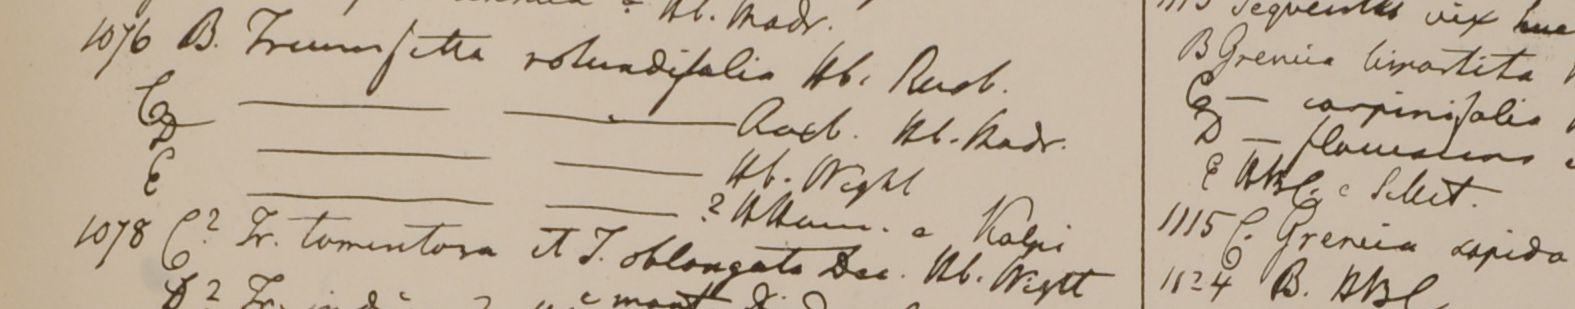 Hb. Madr.
1076 B. Triumfetta rotundifolia Hb. Roxb.
C ——— ——— Roxb. Hb. Madr.
D ——— ——— Hb. Wight
E ——— ——— ? HHam. e Kalpi
1078 C? Tr. tomentosa et T. oblongata Dec. Hb. Wight
D? Tr.
1113 Sequentes vix huc
B Grewia bipartita
C — carpinifolia
D — flavescens
E HBC. e Silhet.
1115 C. Grewia sapida
1124 B. HBC